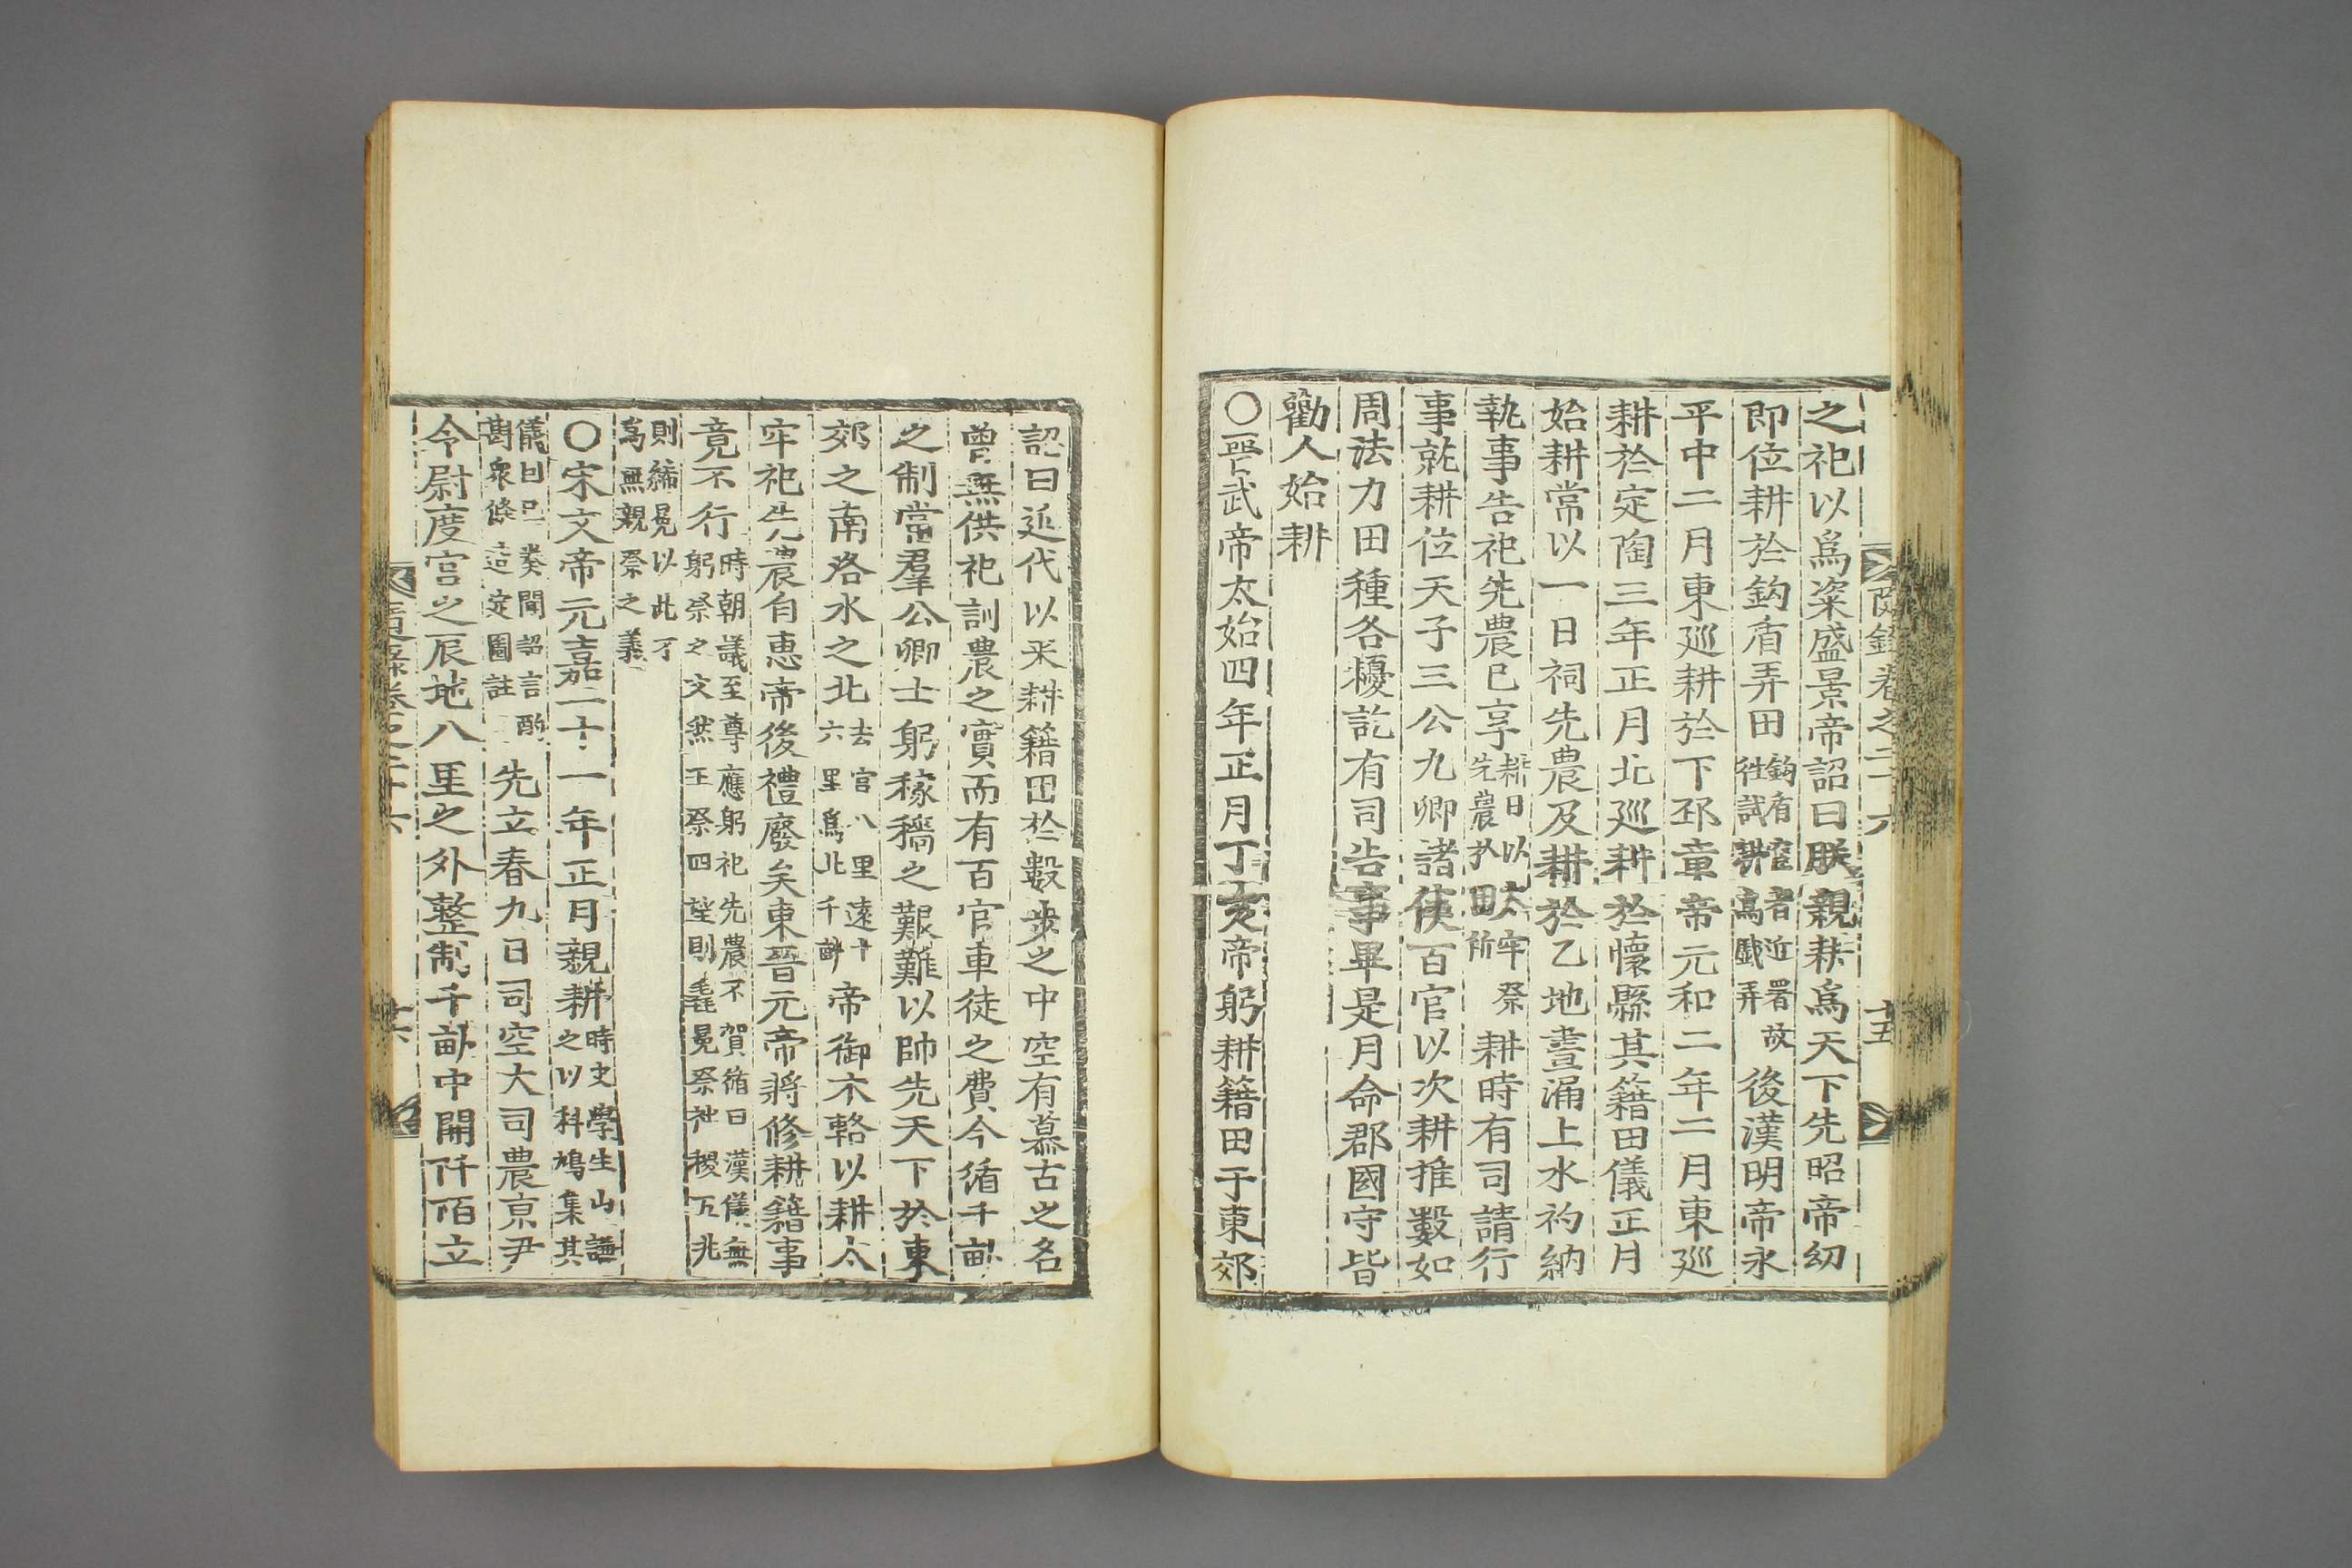 之祀以爲粢盛景帝詔曰朕親耕爲天下先昭帝幼
即位耕於鈎盾弄田鈎盾宦者近署故往試耕爲戱弄後漢明帝永
平中二月東廵耕於下邳章帝元和二年二月東廵
耕於定陶三年正月北廵耕於懷縣其籍田儀正月
始耕常以一日祠先農及耕於乙地晝漏上水初納
執事告祀先農已享耕日以太牢祭先農於田所耕時有司請行
事就耕位天子三公九卿諸侯百官以次耕推數如
周法力田種各耰訖有司告事畢是月命郡國守皆
勸人始耕
〇晋武帝太始四年正月丁亥帝躬耕籍田于東郊
詔曰近代以来耕籍田於數步之中空有慕古之名
曾無供祀訓農之實而有百官車徒之費今循千畝
之制當羣公卿士躬稼穡之艱難以帥先天下於東
郊之南洛水之北去宫八里遠十六里爲北千畝帝御木輅以耕太
牢祀先農自惠帝後禮廢矣東晉元帝將修耕籍事
竟不行時朝議至尊應躬祀先農不賀循曰漢儀無躬祭之文然王祭四望則毳冕祭社稷五祀
則絺冕以此不爲無親祭之義
〇宋文帝元嘉二十一年正月親耕時史學生山謙之以科鳩集其
儀曰已奏聞詔言酌斟衆條造定圖註先立春九日司空大司農京尹
令尉度宫之辰地八里之外整制千畝中開阡陌立
卷之二十六
十五